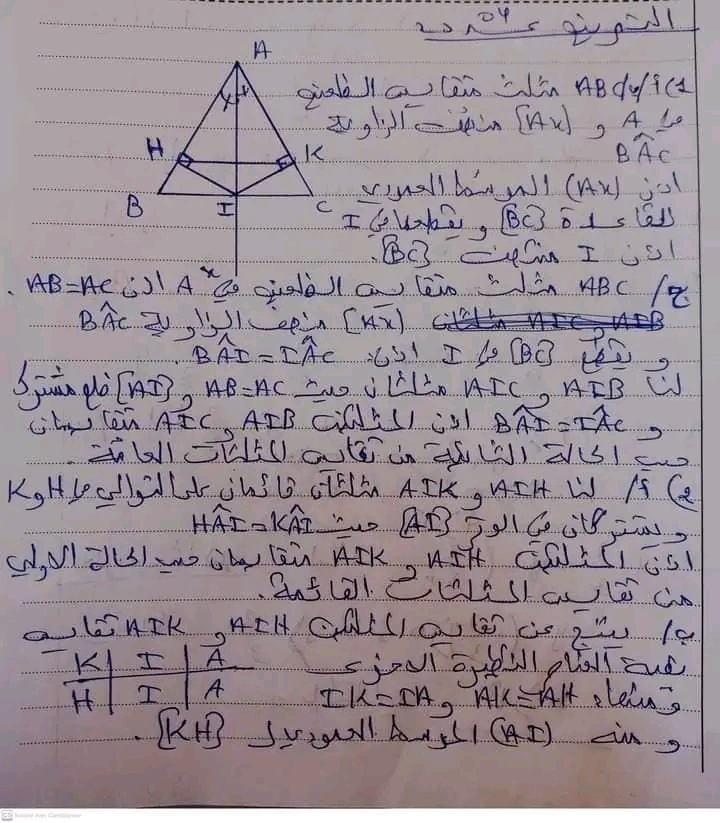 التمرين عدد 04
A
1) أ / ب / ABC مثلث متقايس الضلعين
في A و [Ax) منصف الزاوية
H
K
BÂC
B
I
C
اذن (Ax) الموسط العمودي
للقاعدة [BC] و يقطعها في I
اذن I منتصف [BC].
x
ج / ABC مثلث متقايس الضلعين في A اذن AB=AC.
[Ax) منصف الزاوية BÂC
و يقطع [BC] في I اذن: BÂI=IÂC.
لنا AIB و AIC مثلثان حيث AB=AC و [AI] ضلع مشترك
و BÂI=IÂC اذن المثلثين AIB و AIC متقايسان
حسب الحالة الثانية من تقايس المثلثات العامة.
2) أ / لنا AIH و AIK مثلثان قائمان على التوالي في H و K
و يشتركان في الوتر [AI] حيث HÂI=KÂI
اذن المثلثين AIH و AIK متقايسان حسب الحالة الاولى
من تقايس المثلثات القائمة.
ب / ينتج عن تقايس المثلثين AIH و AIK تقايس
بقية العناصر النظيرة الاخرى
K | I | A
H | I | A
و منها: AK=AH و IK=IA
و منه (AI) الموسط العمودي لـ [KH].
Scanned with CamScanner